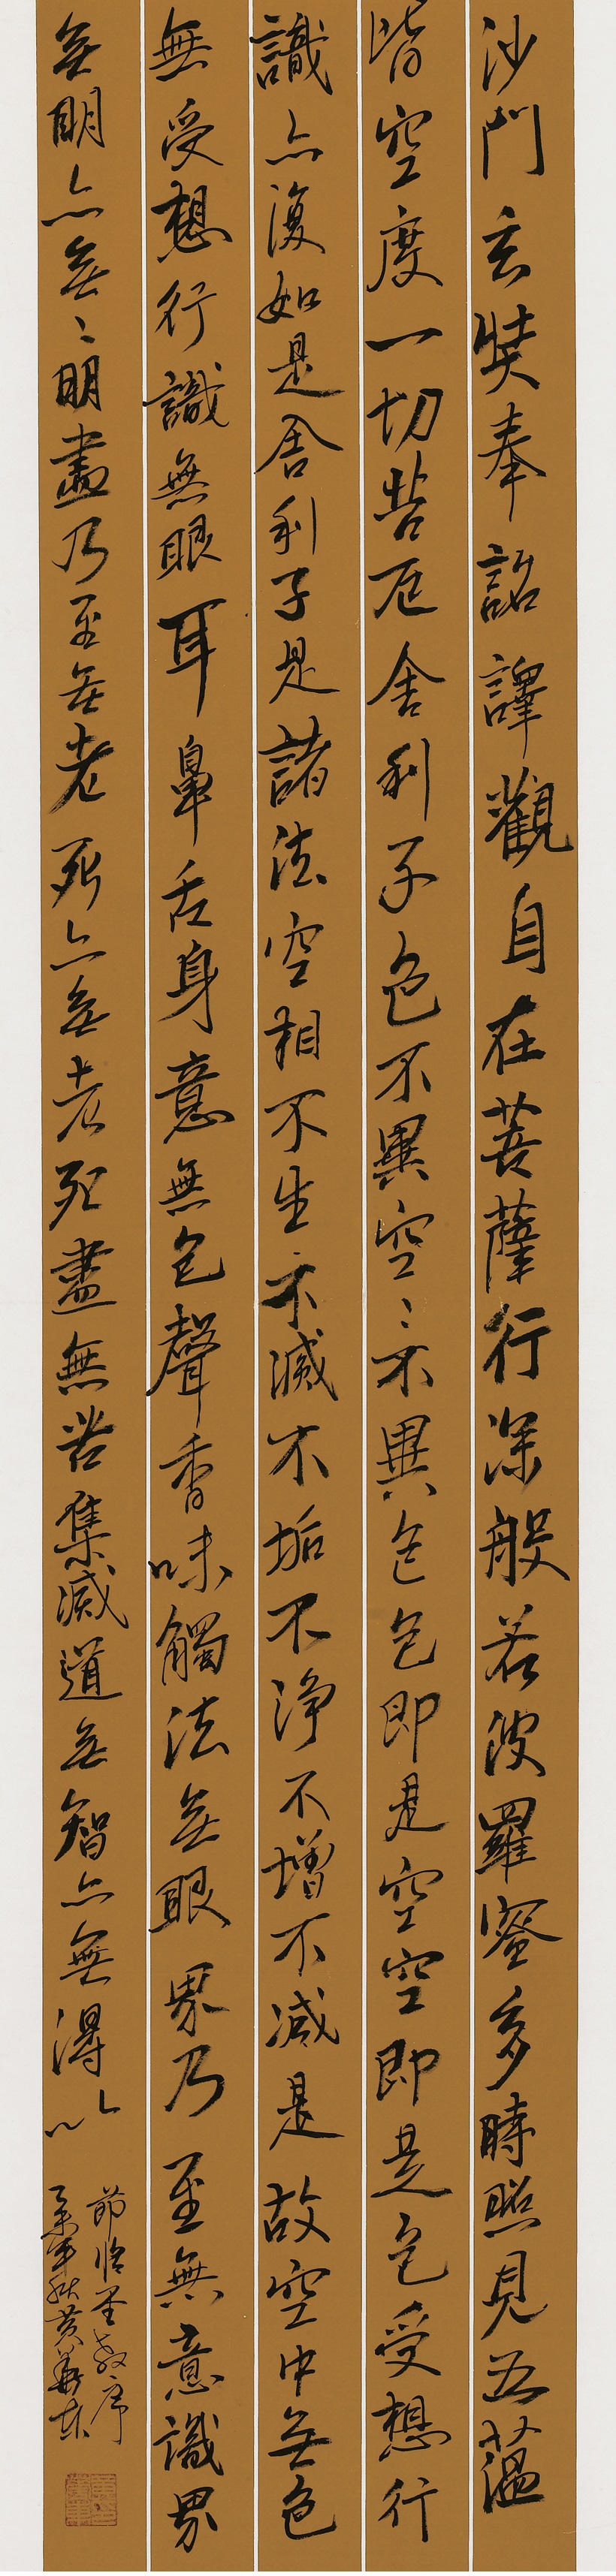 沙門玄奘奉詔譯觀自在菩薩行深般若波羅蜜多時照見五蘊
皆空度一切苦厄舍利子色不異空〻不異色色即是空空即是色受想行
識亦復如是舍利子是諸法空相不生不滅不垢不淨不增不減是故空中無色
無受想行識無眼耳鼻舌身意無色聲香味觸法無眼界乃至無意識界
無明亦無〻明盡乃至無老死亦無老死盡無苦集滅道無智亦無得以
節臨聖教序
年秋黃